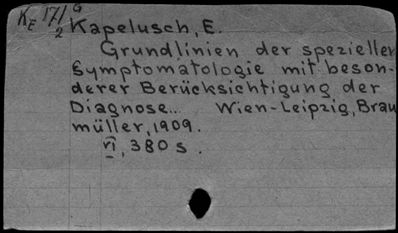 KE 171/2 G
Kapelusch, E.
Grundlinien der spezieller
Symptomatologie mit beson-
derer Berücksichtigung der
Diagnose... Wien-Leipzig, Brau
müller, 1909.
VI, 380 s.